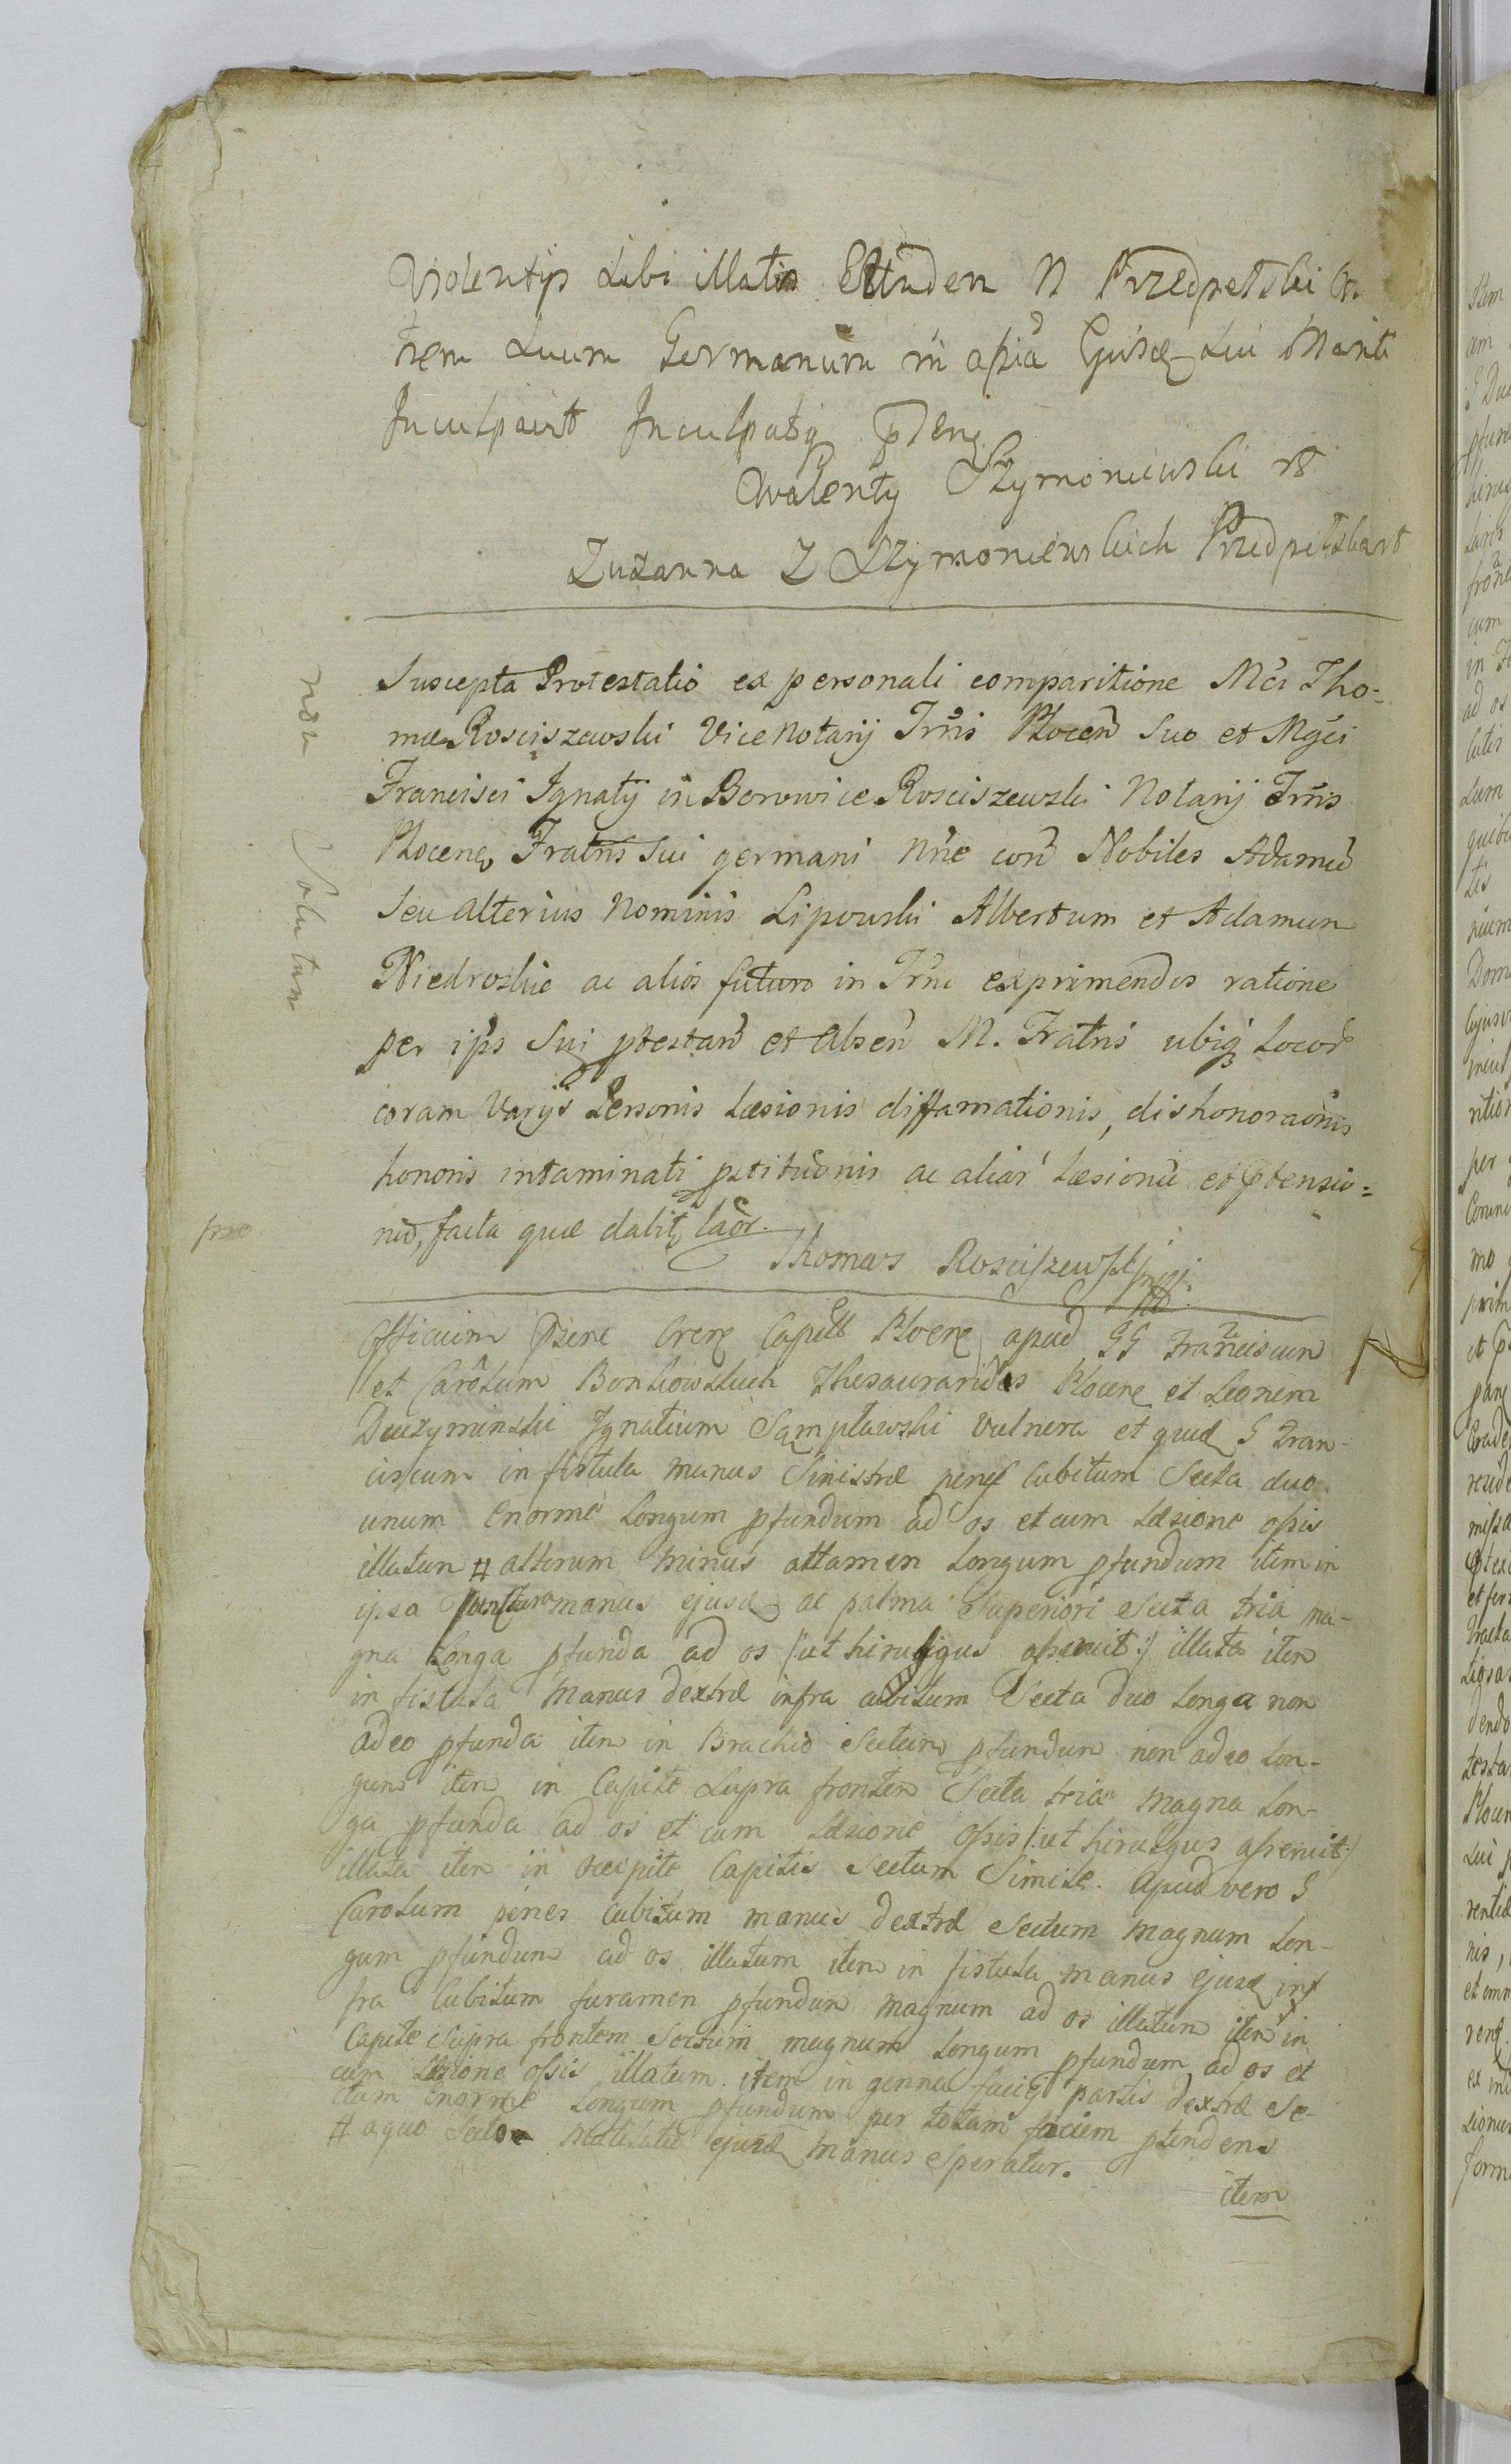 Violentijs Sibi illatis Eundem N Przedpełski
trem Suum Germanum in apia Ejusd Sui Mariti
Inculpavit Inculpatq
Walenty Szymoniewski
Zuzanna Z Szymoniewskich Przedpełska
non Solutum
Suscepta Protestatio ex personali comparitione Mci Tho-
mæ Rosciszewski Vice Notarij Trris Plocen Suo et Mgci
Francisci Ignatij in Borowice Rosciszewski Notarij Trris
Plocen Fratris Sui germani Nne con Nobiles Adamu
Seu alterius Nominis Lipowski Albertum et Adamum
Niedroskie ac alios futuro in Trno exprimendos ratione
per ips Sui ptestan et absen M. Fratris ubiq Locor
coram Varijs Personis Læsionis diffamationis, dishonoraonis
honoris intaminati pstituonis ac aliar Læsionu et ptensio=
pro
nu, facta quæ dabit laor.
Thomas Rosciszewski mpp
Officium Psene Crene Capitle Plocne apud GG Franciscum
et Carolum Bonkowskich Thesaurarides Plocne et Leonem
Duczyminski Ignatium Sampławski vulnera et quid G Fran-
ciscum in fistula manus Sinistræ penes Cubitum Secta duo
unum Enorme Longum pfundum ad os et cum Læsione ossis
illatum # alterum minus attamen Longum pfundum item in
ipsa junctura manus ejusd ac palma Superiori Secta tria ma-
gna Longa pfunda ad os /:ut hirurgus asseruit:/ illata item
in fistula Manus dextræ infra cubitum Secta duo Longa non
adeo pfunda item in Brachio Sectum pfundum non adeo Lon-
gum item in Capite Supra frontem Secta tria Magna Lon-
ga pfunda ad os et cum Læsione ossis /:ut hirurgus asseruit:/
illata item in occipite Capitis Sectum Simile. Apud vero G
Carolum penes cubitum manus dextræ Sectum Magnum Lon-
gum pfundum ad os illatum item in fistula manus ejusd in
fra Cubitum furamen pfundum magnum ad os illatum item in
Capite Supra frontem Sectum magnum Longum pfundum ad os et
cum Læsione ossis illatum item in genna faciei partis dextræ Se-
ctum Enorme Longum pfundum per totam faciem ptendens
# a quo Secto Mutilatio ejusd manus Speratur.
item